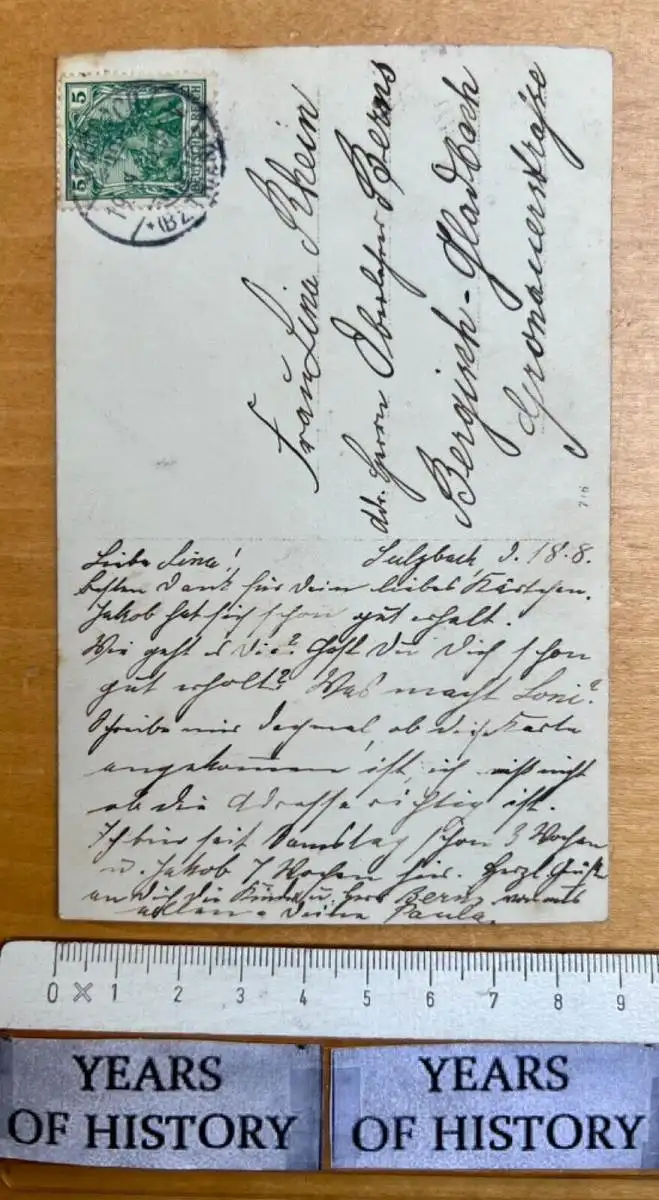 5 5
DEUTSCHES REICH
*(BZ.
Frau Lina Rhein
adr. Herrn Oberlehrer Berns
Bergisch-Gladbach
Gronauerstrasse
716
Liebe Lina! Sulzbach, d. 18.8.
Besten Dank für Dein liebes Kärtchen.
Jakob hat sich schon gut erholt.
Wie geht es Dir? Hast Du Dich schon
gut erholt? Was macht Loni?
Schreibe mir doch mal, ob die Karte
angekommen ist, ich weiß nicht
ob die Adresse richtig ist.
Ich bin seit Samstag schon 3 Wochen
u. Jakob 7 Wochen hier. Herzl. Grüße
an Dich die Kinder u. Herr Berns von uns
allen. Deine Paula.
0 1 2 3 4 5 6 7 8 9
YEARS OF HISTORY
YEARS OF HISTORY